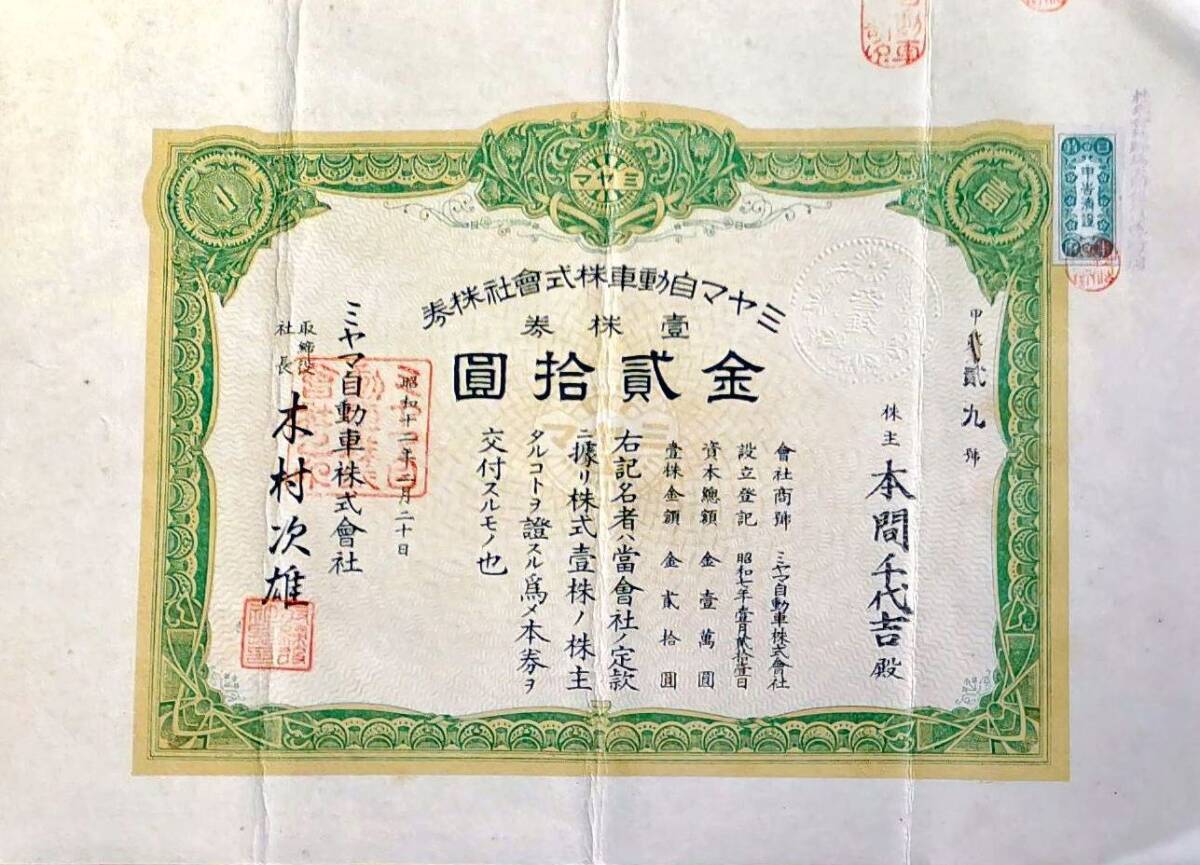 ミヤマ
壹
ミヤマ自動車株式會社株券
壹株券
金貳拾圓
甲
貳九號
株主 本間千代吉殿
會社商號 ミヤマ自動車株式會社
設立登記 昭和七年壹月貳拾壹日
資本總額 金壹萬圓
壹株金額 金貳拾圓
右記名者ハ當會社ノ定款
ニ據リ株式壹株ノ株主
タルコトヲ證スル爲メ本券ヲ
交付スルモノ也
昭和十二年二月二十日
ミヤマ自動車株式會社
取締役社長 木村次雄